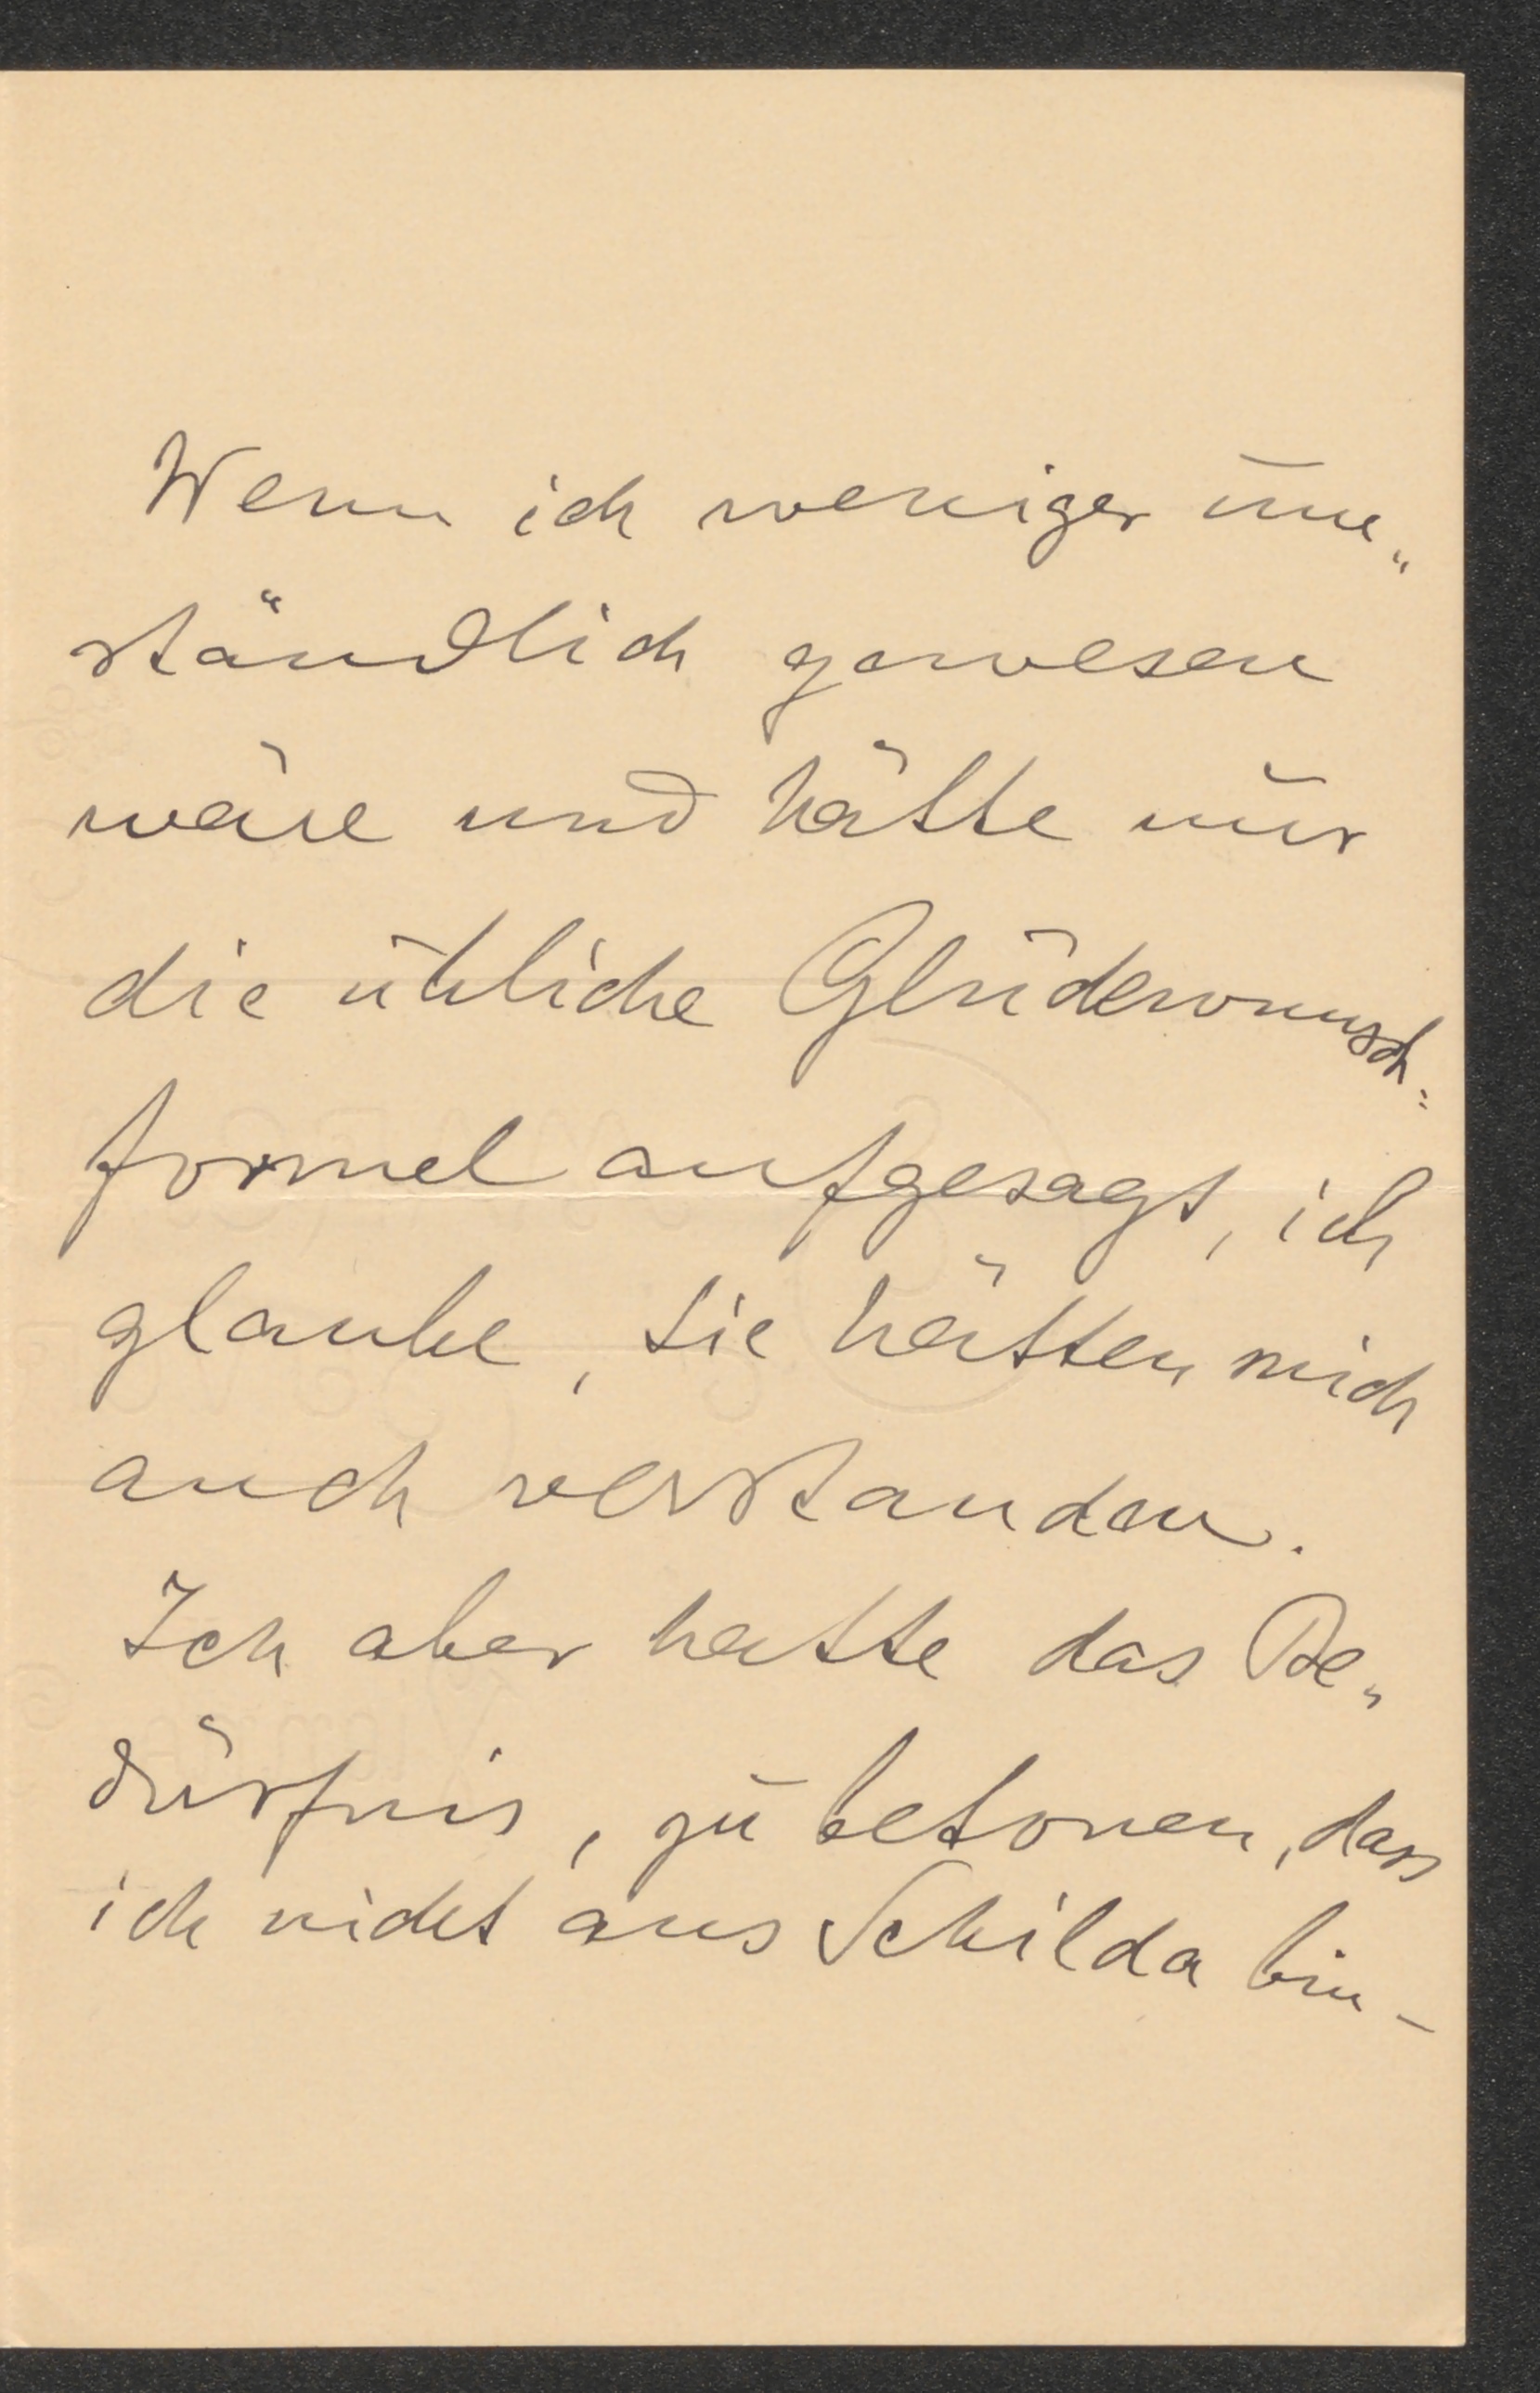 Wenn ich weniger um„
ständlich gewesen
wäre und hätte nur
die übliche Glückwunsch„
formel aufgesagt, ich
glaube, Sie hätten mich
auch verstanden.
Ich aber hatte das Be„
dürfnis, zu betonen, dass
ich nicht aus Schilda bin –